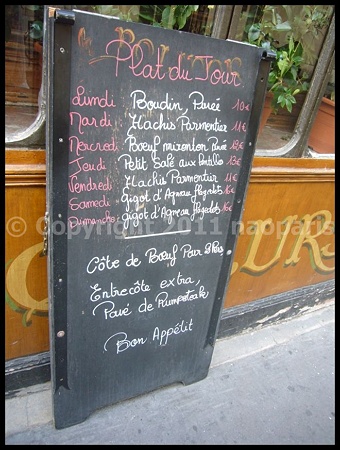 Plat du Jour
Lundi Boudin Purée 10€
Mardi Hachis Parmentier 11€
Mercredi Bœuf mironton Purée 12€
Jeudi Petit Salé aux lentilles 13€
Vendredi Hachis Parmentier 11€
Samedi Gigot d'Agneau flageolets 16€
Dimanche Gigot d'Agneau flageolets 16€
© Copyright 2011 naoparis
Côte de Bœuf Pour
Entrecôte extra,
Pavé de Rumpsteak
Bon Appétit